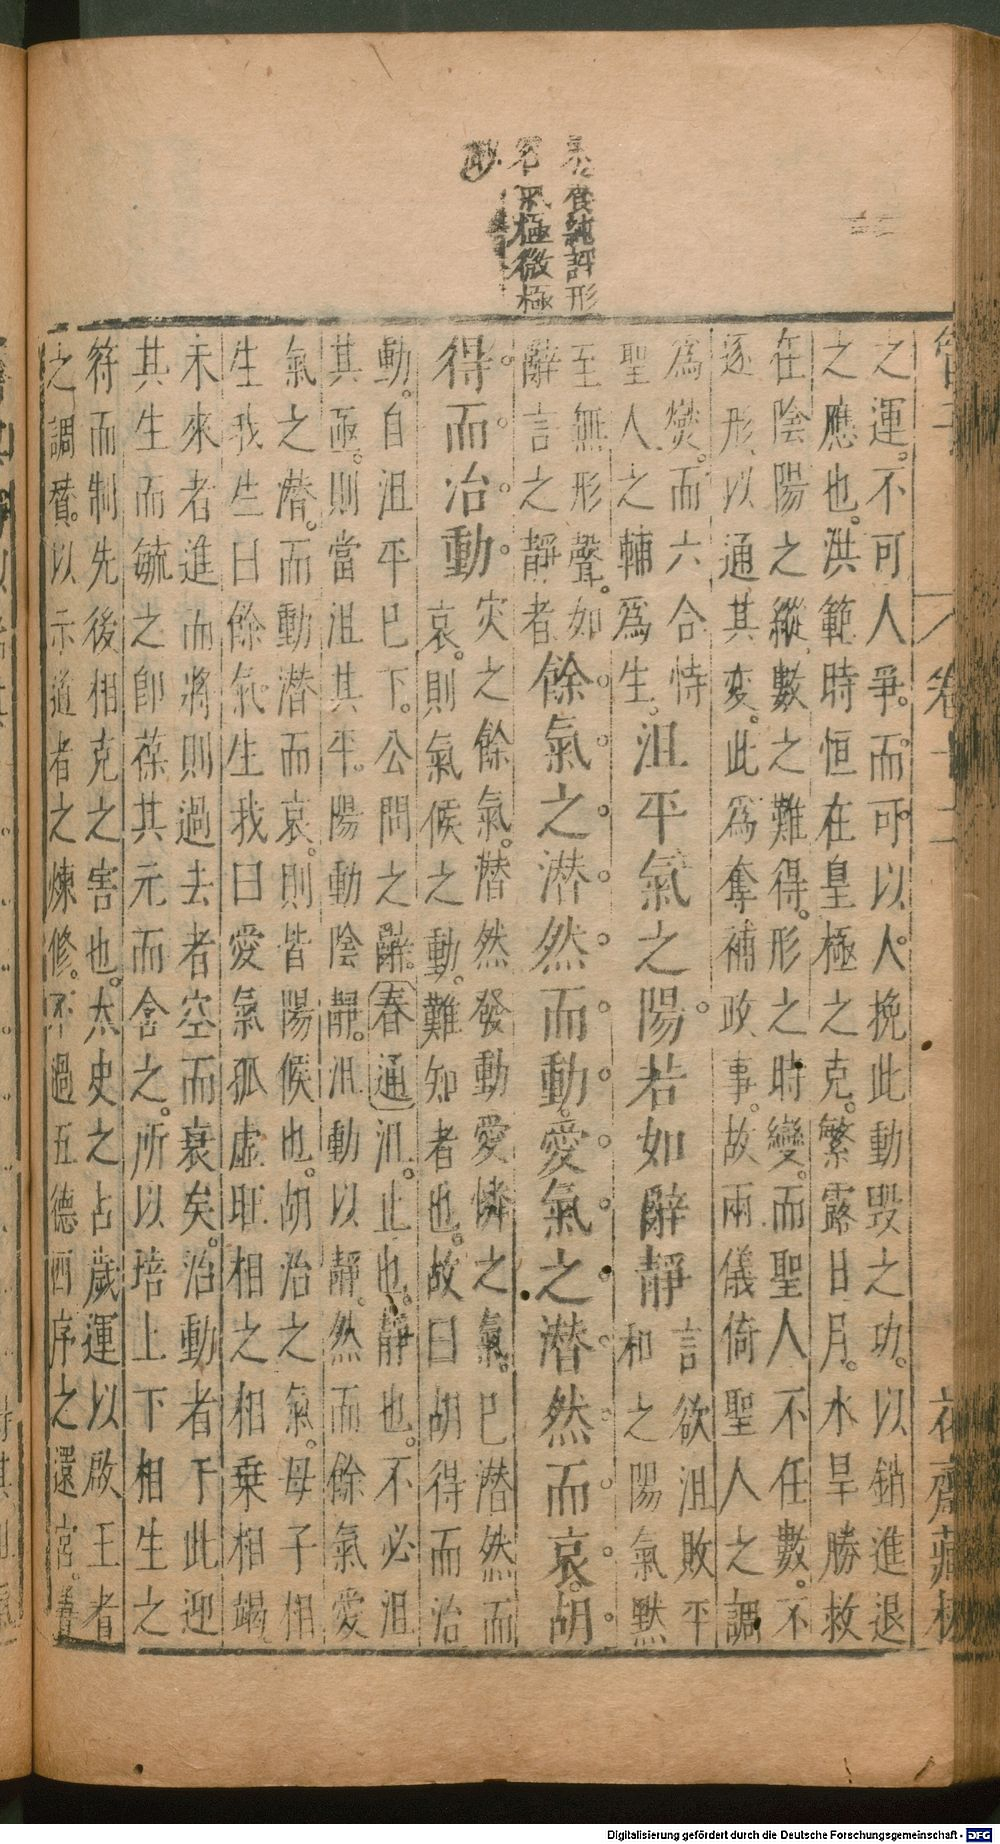 朱養純評形
名氣極微極
之運。不可人爭。而可以人挽此動毀之功。以銷進退
之應也。洪範時恒在皇極之克。繁露日月。水旱勝救
在陰陽之縱數之難得。形之時變。而聖人不任數。不
逐形以通其变。此爲奪補政事。故兩儀倚聖人之調
爲燮。而六合恃
聖人之輔爲生。
沮平氣之陽若如辭靜
言欲沮敗平
和之陽氣默
至無形聲。如
辭言之靜者
餘氣之潜然而動。愛氣之潜然而哀。胡
得而治動
灾之餘氣。潜然發動愛憐之氣。已潜然而
哀。則氣候之動。難知者也。故曰胡得而治
動。自沮平已下。公問之辭。春通沮。止也。靜也。不必沮
其亟。則當沮其平。陽動陰靜。沮動以靜。然而餘氣愛
氣之潜。而動潜而哀。則皆陽候也。胡治之氣。母子相
生我生曰餘氣。生我曰愛氣孤虛旺相之相乗相竭
未來者進而將則過去者空而衰矣。治動者于此迎
其生而毓之卽葆其元而含之。所以培上下相生之
符而制先後相克之害也。太史之占歲運以啟王者
之調賛。以示道者之煉修。不過五德四序之還宮。
管子
卷十二
花齋藏板
Digitalisierung gefördert durch die Deutsche Forschungsgemeinschaft - DFG